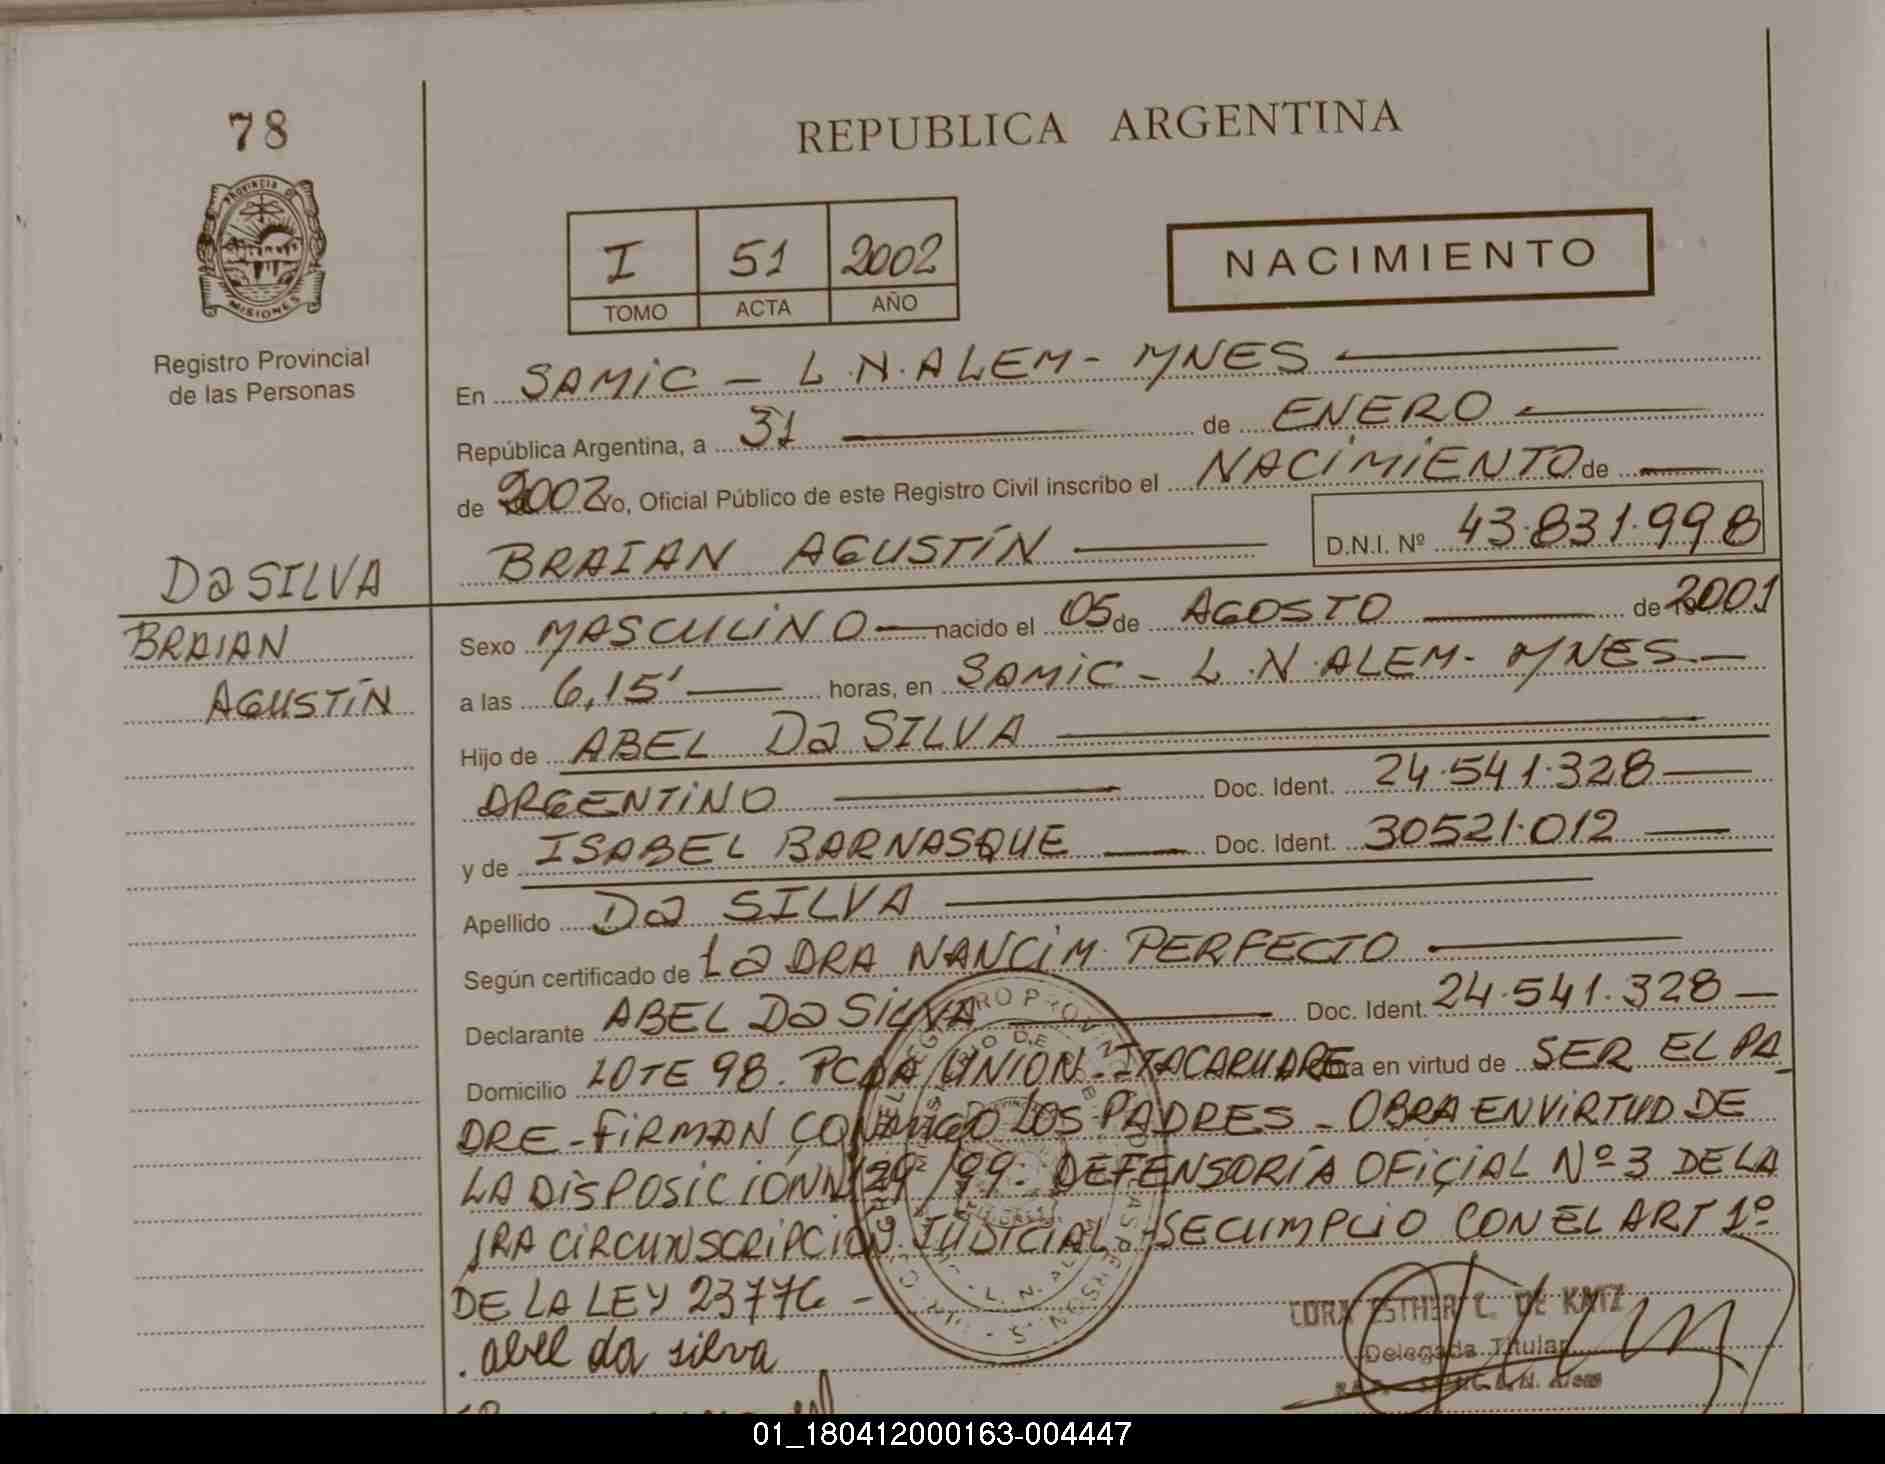 78
PROVINCIA DE
MISIONES
Registro Provincial
de las Personas
Da SILVA
BRAIAN
AGUSTÍN
REPUBLICA ARGENTINA
I 51 2002
TOMO ACTA AÑO
NACIMIENTO
En SAMIC - L.N.ALEM - MNES
República Argentina, a 31 de ENERO
de 2002 Yo, Oficial Público de este Registro Civil inscribo el NACIMIENTO de
BRAIAN AGUSTÍN D.N.I. Nº 43.831.998
Sexo MASCULINO nacido el 05 de AGOSTO de 2001
a las 6,15' horas, en SAMIC - L.N.ALEM - MNES
Hijo de ABEL Da SILVA
ARGENTINO Doc. Ident. 24.541.328
y de ISABEL BARNASQUE Doc. Ident. 30521.012
Apellido Da SILVA
Según certificado de La DRA NANCI M. PERFECTO
Declarante ABEL Da SILVA Doc. Ident. 24.541.328
Domicilio LOTE 98. PCDA UNION - ITACARUARE en virtud de SER EL PA
DRE - FIRMAN CONMIGO LOS PADRES - OBRA EN VIRTUD DE
LA DISPOSICIÓN 29/99. DEFENSORÍA OFICIAL Nº 3 DE LA
1RA CIRCUNSCRIPCIÓN JUDICIAL - SE CUMPLIO CON EL ART 1º
DE LA LEY 23776 -
abel da silva
CORA ESTHER C. DE KATZ
Delegada Titular
01_180412000163-004447